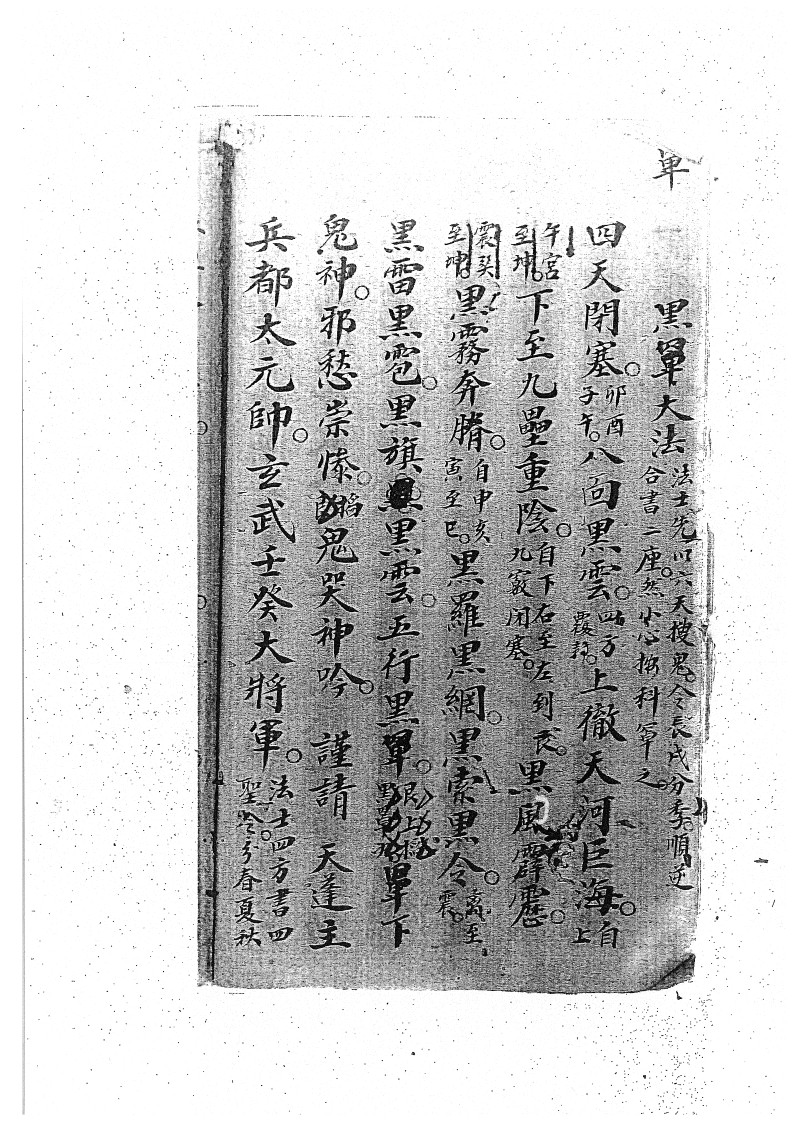 單
黑單大法 法士先以六天搜鬼。令長戌分季順逆 合書二座。然 小心按科單之。
四天閉塞。卯酉 子午。八面黑雲。四方 覆 上徹天河巨海。自 上
午宮 至坤。下至九壘重陰。自下右至左到艮。 九竅閉塞。黑風 霹靂。
震巽 至坤。黑霧奔騰。自申亥 寅至巳。黑羅黑網。黑索黑令。离至 震。
黑雷黑雹。黑旗黑雲。五行黑單。單下
鬼神。邪愁崇 。鬼哭神吟。謹請 天蓬主
兵都太元帥。玄武壬癸大將軍。法士四方書四 聖 分春夏秋